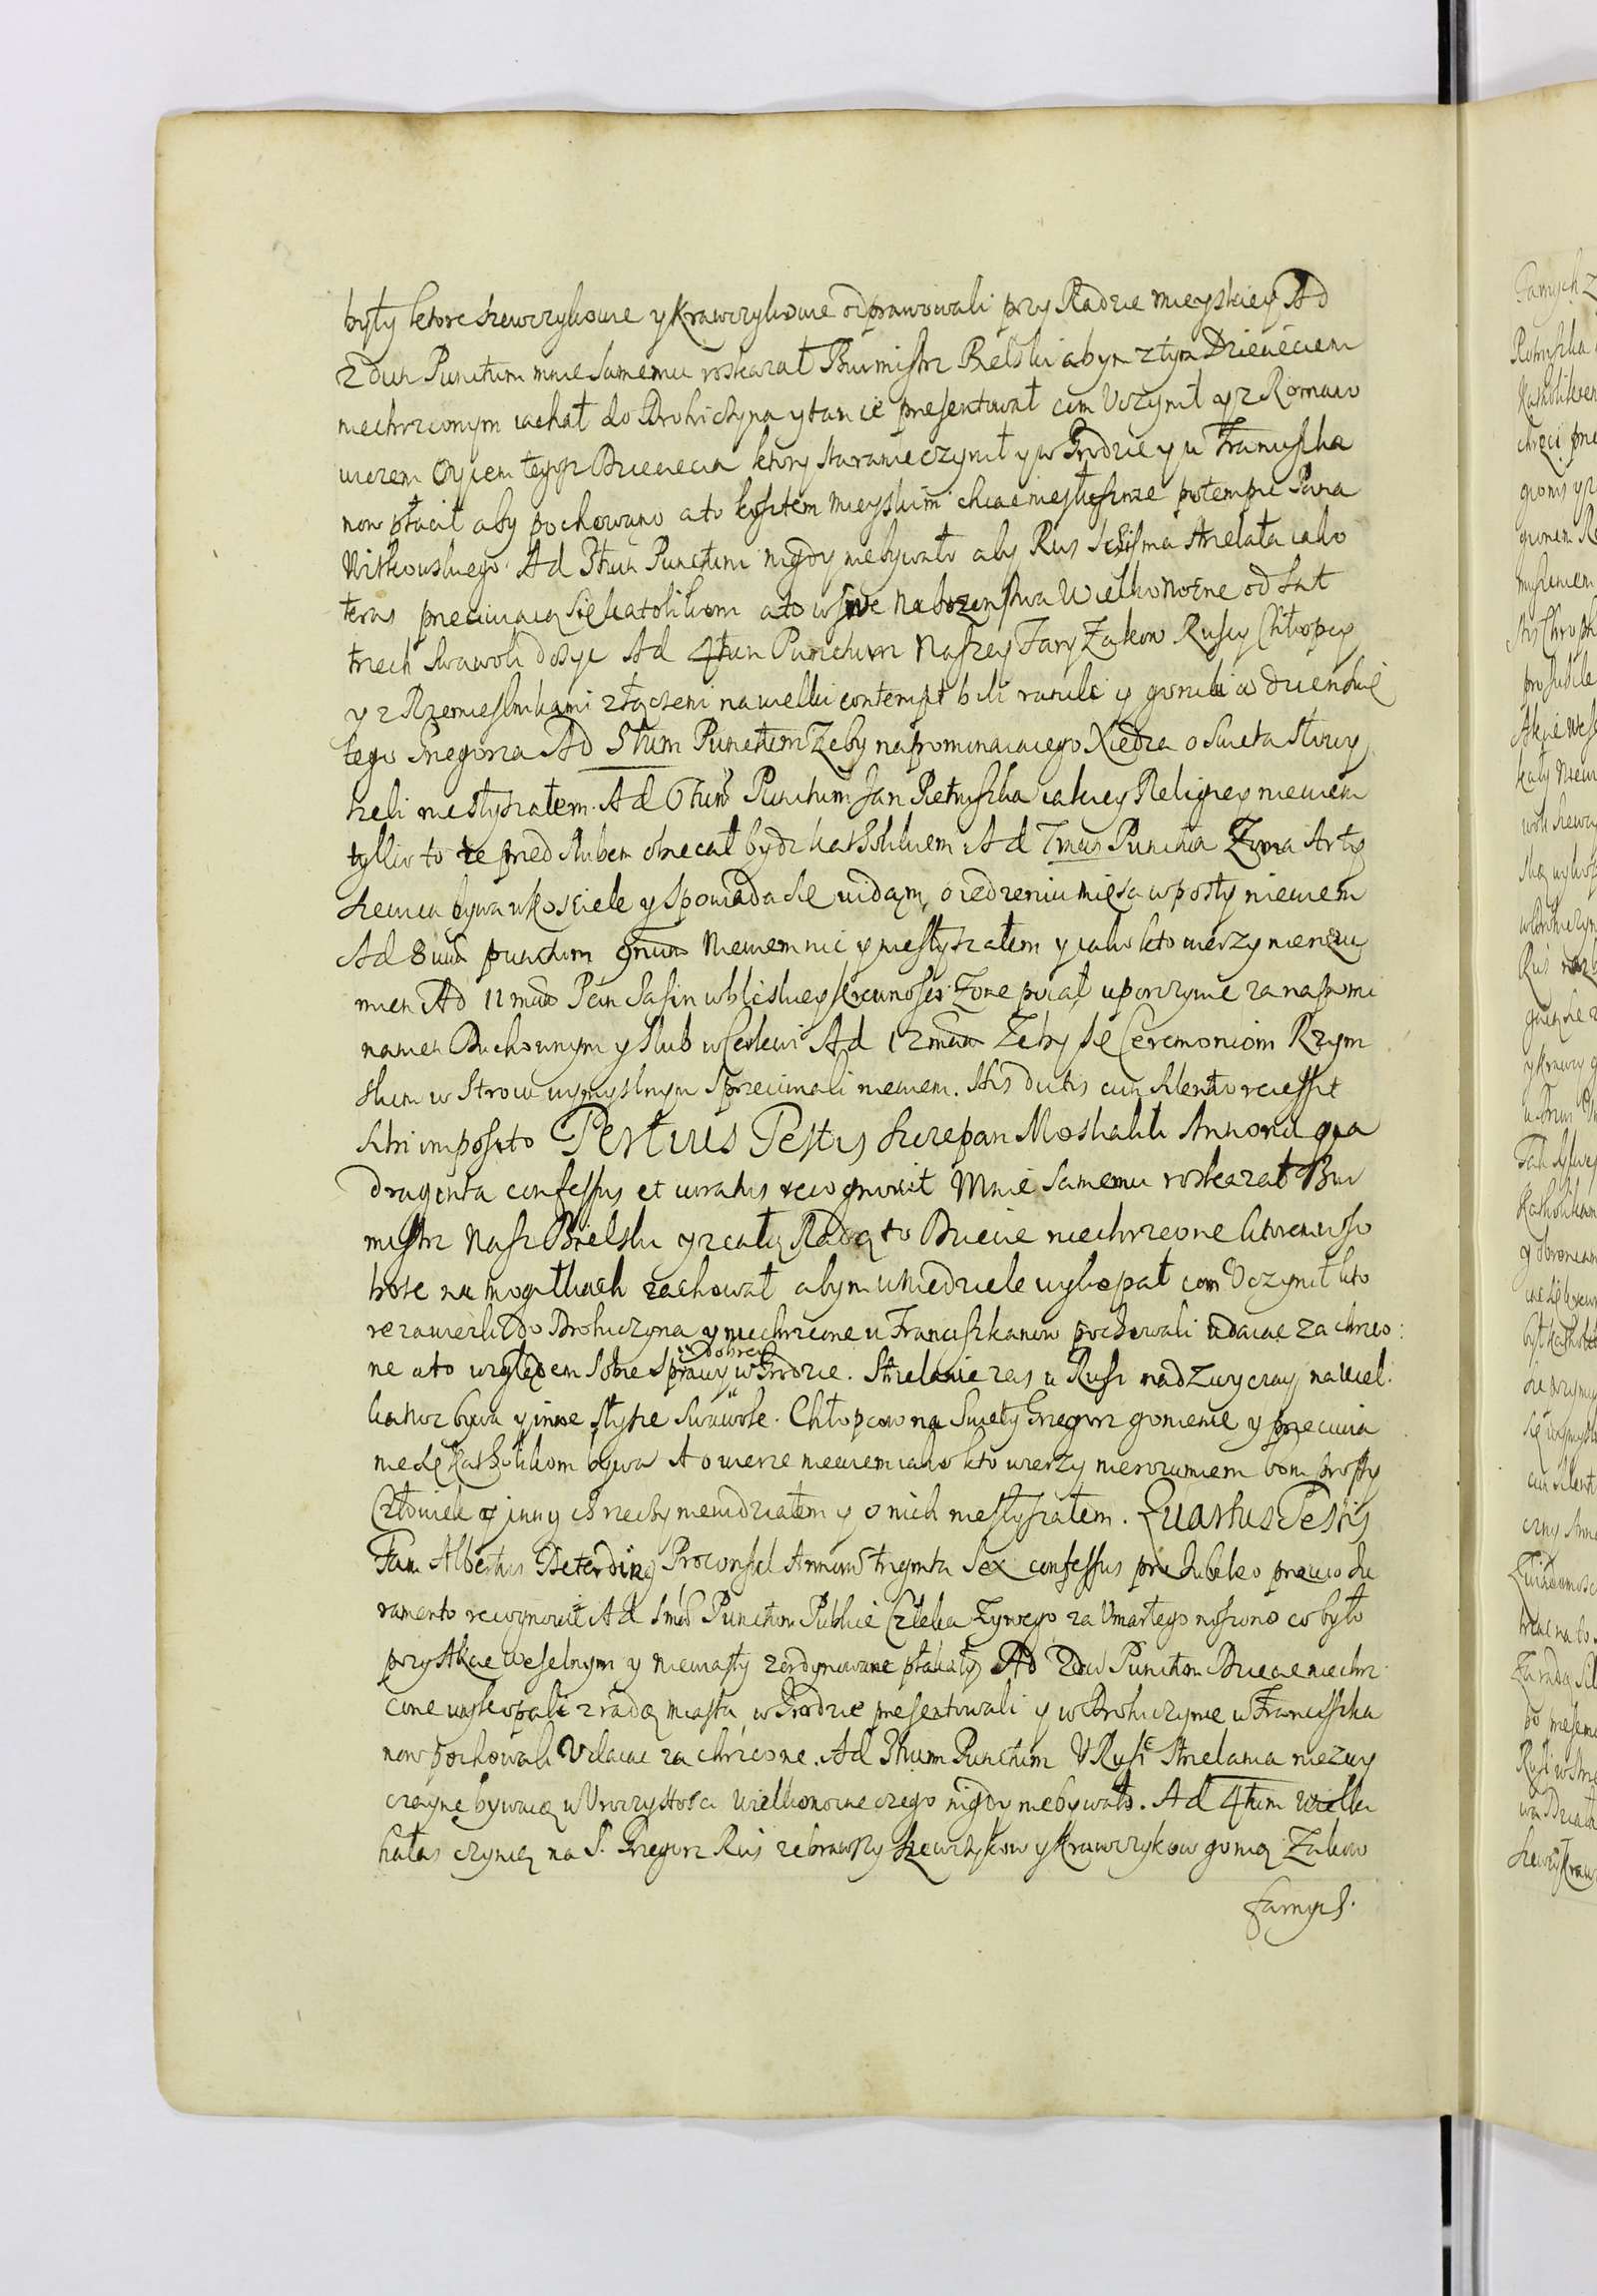 były ktore szewczykowie y Krawczykowie odprawowali przy Radzie mieyskiey Ad
2dum Punctum mnie samemu roskazał Burmistrz Bielski abym z tym Dziecięciem
niechrzconym iachał do Drohiczyna y tam ie presentował com Uczynił y z Romano
wiczem Oycem tegosz Dziecięcia ktory staranie czynił y w Grodzie y u Franciszka
now płacił aby pochowano a to kosztem mieyskim chcąc niesłusznie potempic Pana
Witkowskiego. Ad 3tium Punctum nigdy niebywało aby Rus Schisma strelała iako
teras przeciwiaią się katolikom a to w swe nabozenstwa Wielkonocne od lat
trzech swawoli dosyc Ad 4tum Punctum Naszey Fary Zakow Ruscy Chłopcy
y z Rzemieslnikami złączeni na wielki contempt bili ranili y gonili w dzien Swię
tego Grzegorza Ad 5tum Punctum Zeby napominaiącego Xiędza o Swięta słowy
zeli niesłyszałem. Ad 6tum Punctum Jan Pietruszka iakiey Religiey niewiem
tylko to ze przed slubem obiecał bydz katholikiem Ad 7mum Puncta Zona Arty
szewca bywa w kosciele y spowiada się widam, o iedzeniu mięsa w posty niewiem
Ad 8uum punctum 9num Niewiem nic y niesłyszałem y iako kto wierzy nierozu
miem Ad 11mum Pan Sasin w bliskiey krewnosci Zonę poiął uporczywie za napomi
naniem Duchownym y slub w Cerkwi Ad 12mum Zeby się Ceremoniom Rzym
skim w stroiu wymyslnym sprzeciwiali niewiem. His dictis cum silentio recessit
sibi imposito Tertius Testis Szczepan Moskalik Annorum qua
draginta confessus et iuratus recognovit Mnie samemu roskazał Bur
mistrz Nasz Bielski y z całą Radą to Dziecie niechrzcone ktore w so
botę na mogiłkach zachował abym w Niedziele wykopał com Uczynił kto
re zawiezli do Drohiczyna y niechrzcone u Franciszkanow pochowali udaiąc za chrzco:
ne a to względem sobie
dobrey
sprawy w Grodzie. Strelanie zas u Rusi nadzwyczay na Wiel:
kanoc bywa y inne słysze swawole. Chłopcow na Swięty Grzegorz gonienie y przeciwia
nie się katholikom bywa A o wierze niewiem iako kto wierzy nierozumiem bom prosty
Człowiek y innych rzeczy niewidziałem y o nich niesłyszałem. Quartus Testis
Fam: Albertus Proconsul Annorum triginta sex confessus pro Jubileo praevio Iu
ramento recognovit Ad 1mum Punctum Publice Człeka Zywego za Umarłego noszono co było
przy Akcie weselnym y niewiasty zordynowane płakały Ad 2dum Punctum Dziecie niechrz
cone wykopali z radą miasta w Grodzie presentowali y w Drohiczynie u Franciszka
now pochowali Udaiąc za chrzcone. Ad 3tium Punctum U Rusi Strelania niezwy
czayne bywaią w Uroczystosci wielkonocne czego nigdy niebywało. Ad 4tum wielki
hałas czynią na S. Grzegorz Rus zebrawszy szewczykow y Krawczykow gonią Zakow
Farnych.